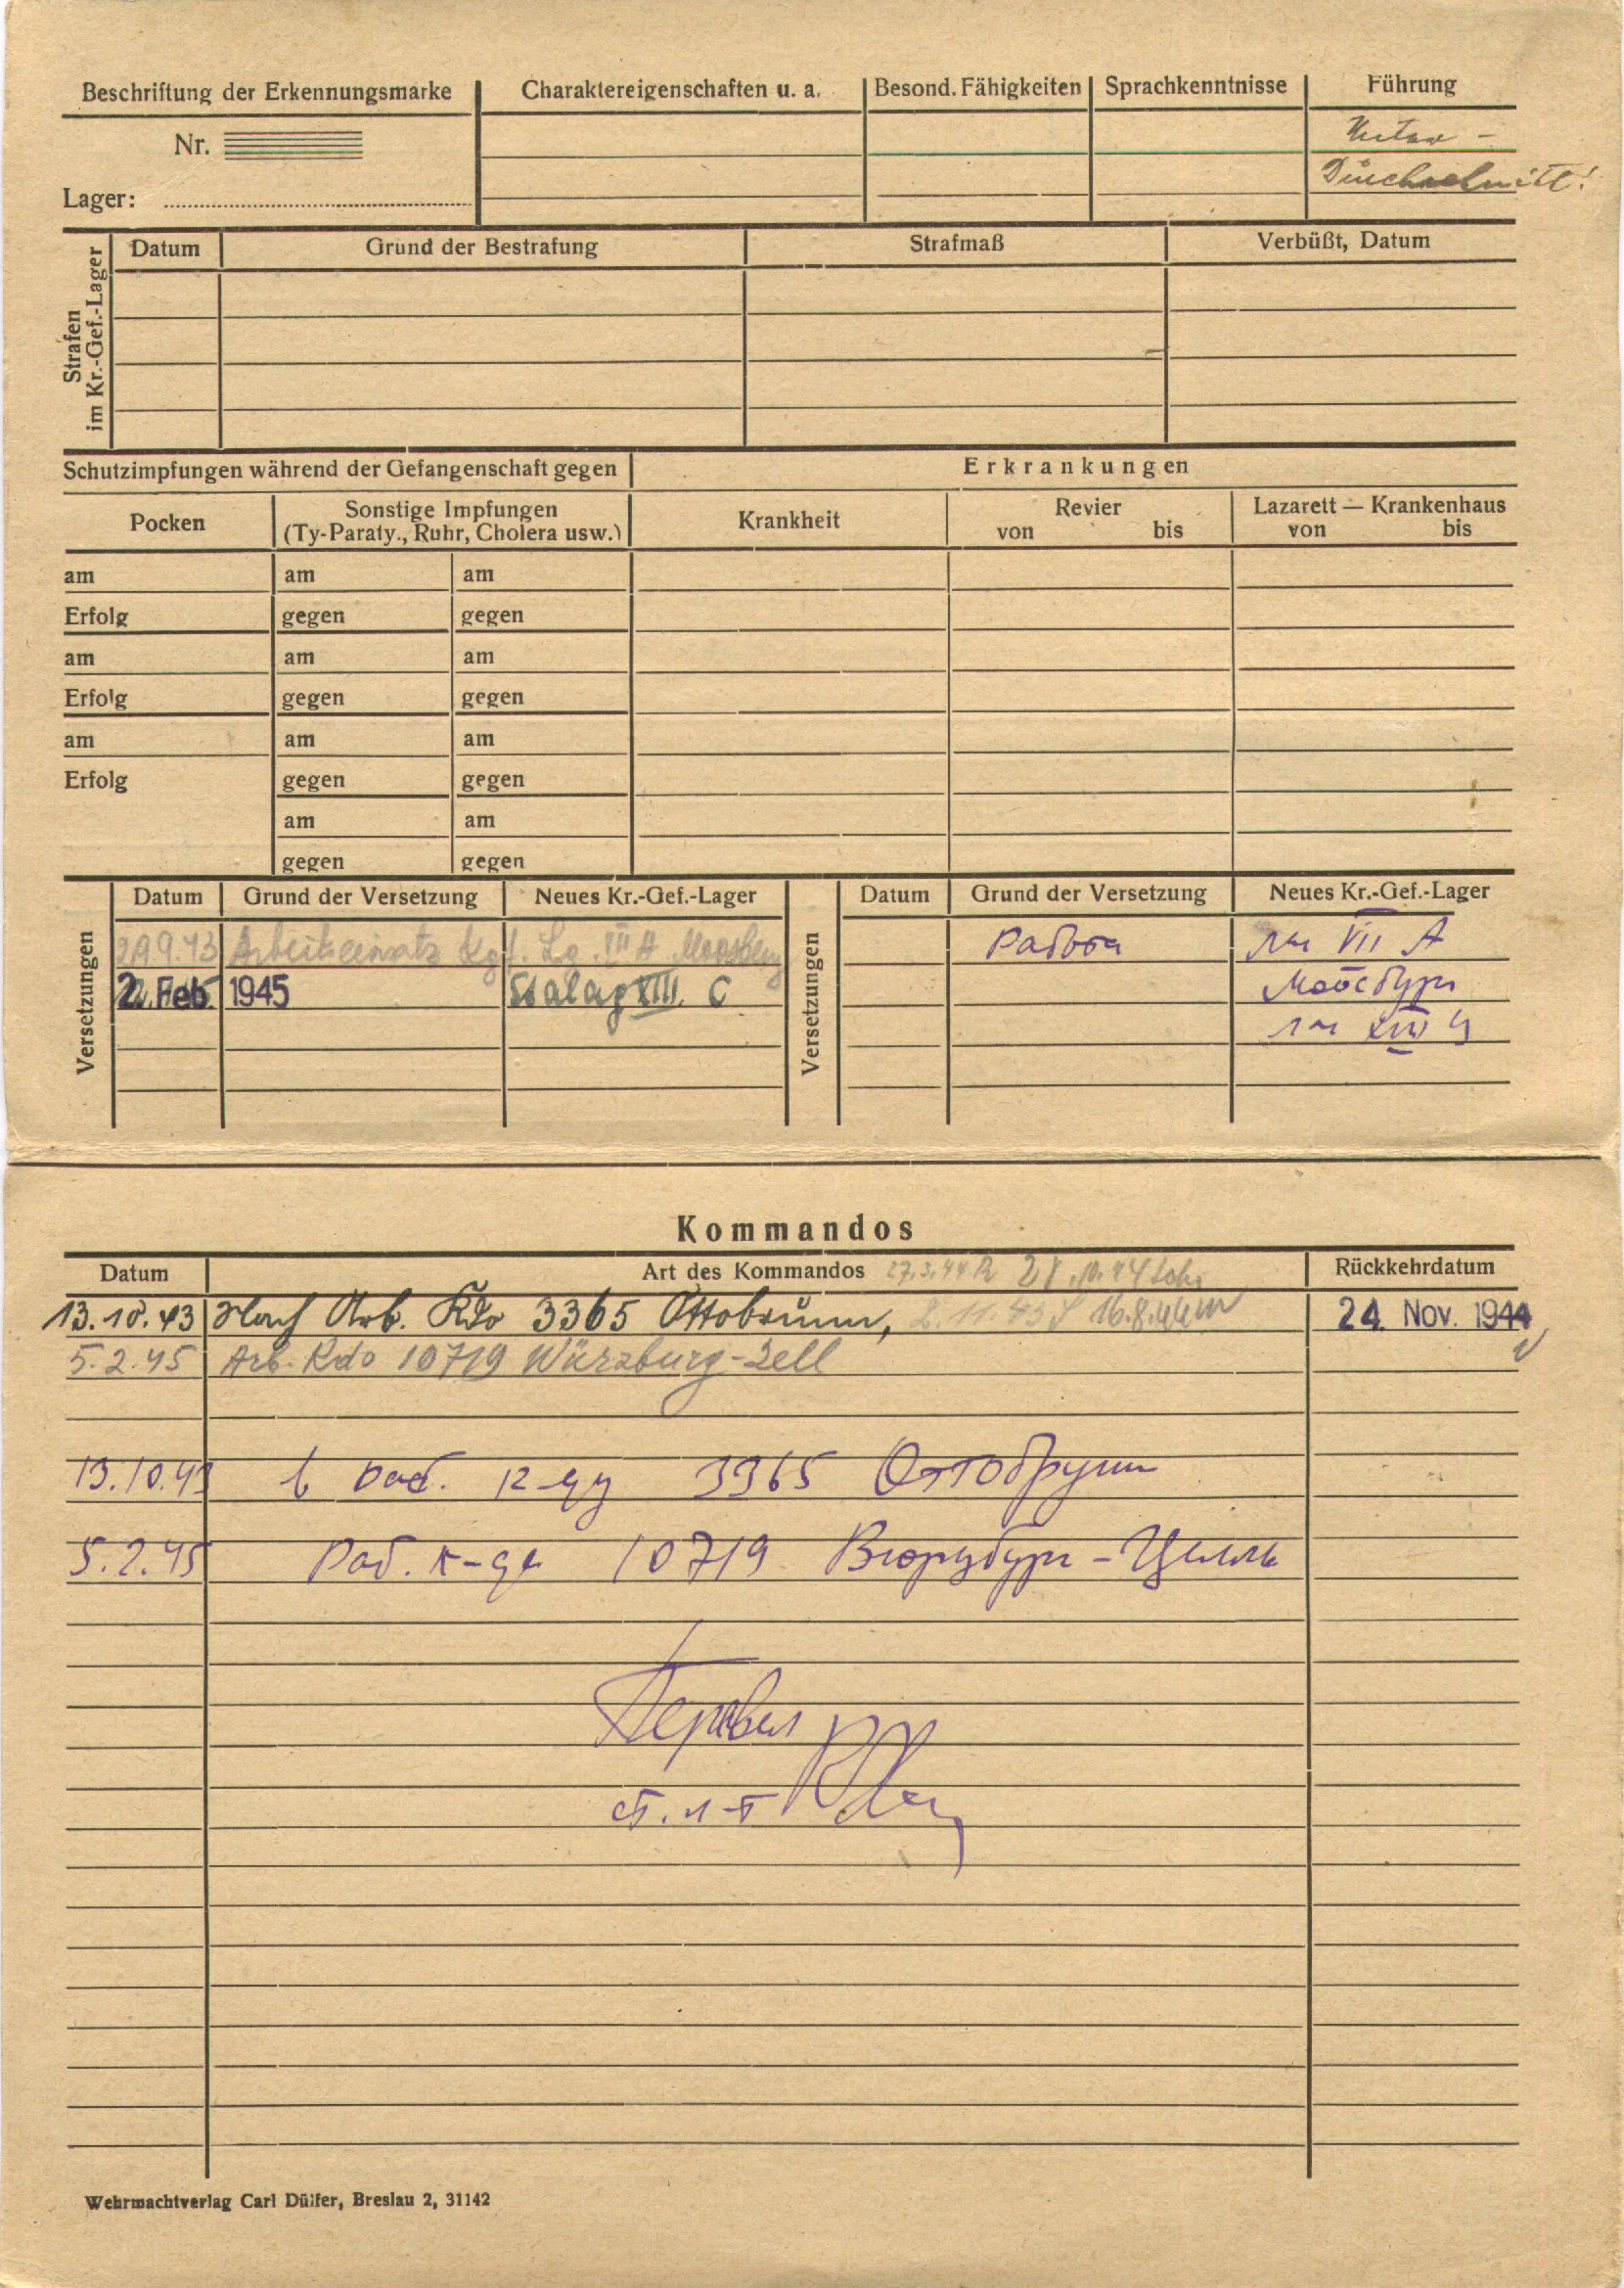 Beschriftung der Erkennungsmarke
Charaktereigenschaften u. a.
Besond. Fähigkeiten
Sprachkenntnisse
Führung
Nr.
Lager:
Unter -
Durchschnitt!
Strafen
im Kr.-Gef.-Lager
Datum
Grund der Bestrafung
Strafmaß
Verbüßt, Datum
Schutzimpfungen während der Gefangenschaft gegen
Erkrankungen
Pocken
Sonstige Impfungen
(Ty-Paraty., Ruhr, Cholera usw.)
Krankheit
Revier
von bis
Lazarett — Krankenhaus
von bis
am am am
Erfolg gegen gegen
am am am
Erfolg gegen gegen
am am am
Erfolg gegen gegen
am am
gegen gegen
Versetzungen
Datum Grund der Versetzung Neues Kr.-Gef.-Lager
29.9.43 Arbeitseinsatz Kgf. Lg. VII A Moosburg
2. Feb. 1945 Stalag XIII. C
Versetzungen
Datum Grund der Versetzung Neues Kr.-Gef.-Lager
Работа лаг VII A
Моосбург
лаг XIII Ц
Kommandos
Datum Art des Kommandos 27.3.44 28.10.44 Rückkehrdatum
13.10.43 Nach Arb. Kdo 3365 Ottobrunn, 24. Nov. 1944
5.2.45 Arb. Kdo 10719 Würzburg-Zell
13.10.43 в раб. к-ду 3365 Оттобрунн
5.2.45 Раб. к-да 10719 Вюрцбург-Целль
Перевел
ст. л-т
Wehrmachtverlag Carl Dülfer, Breslau 2, 31142